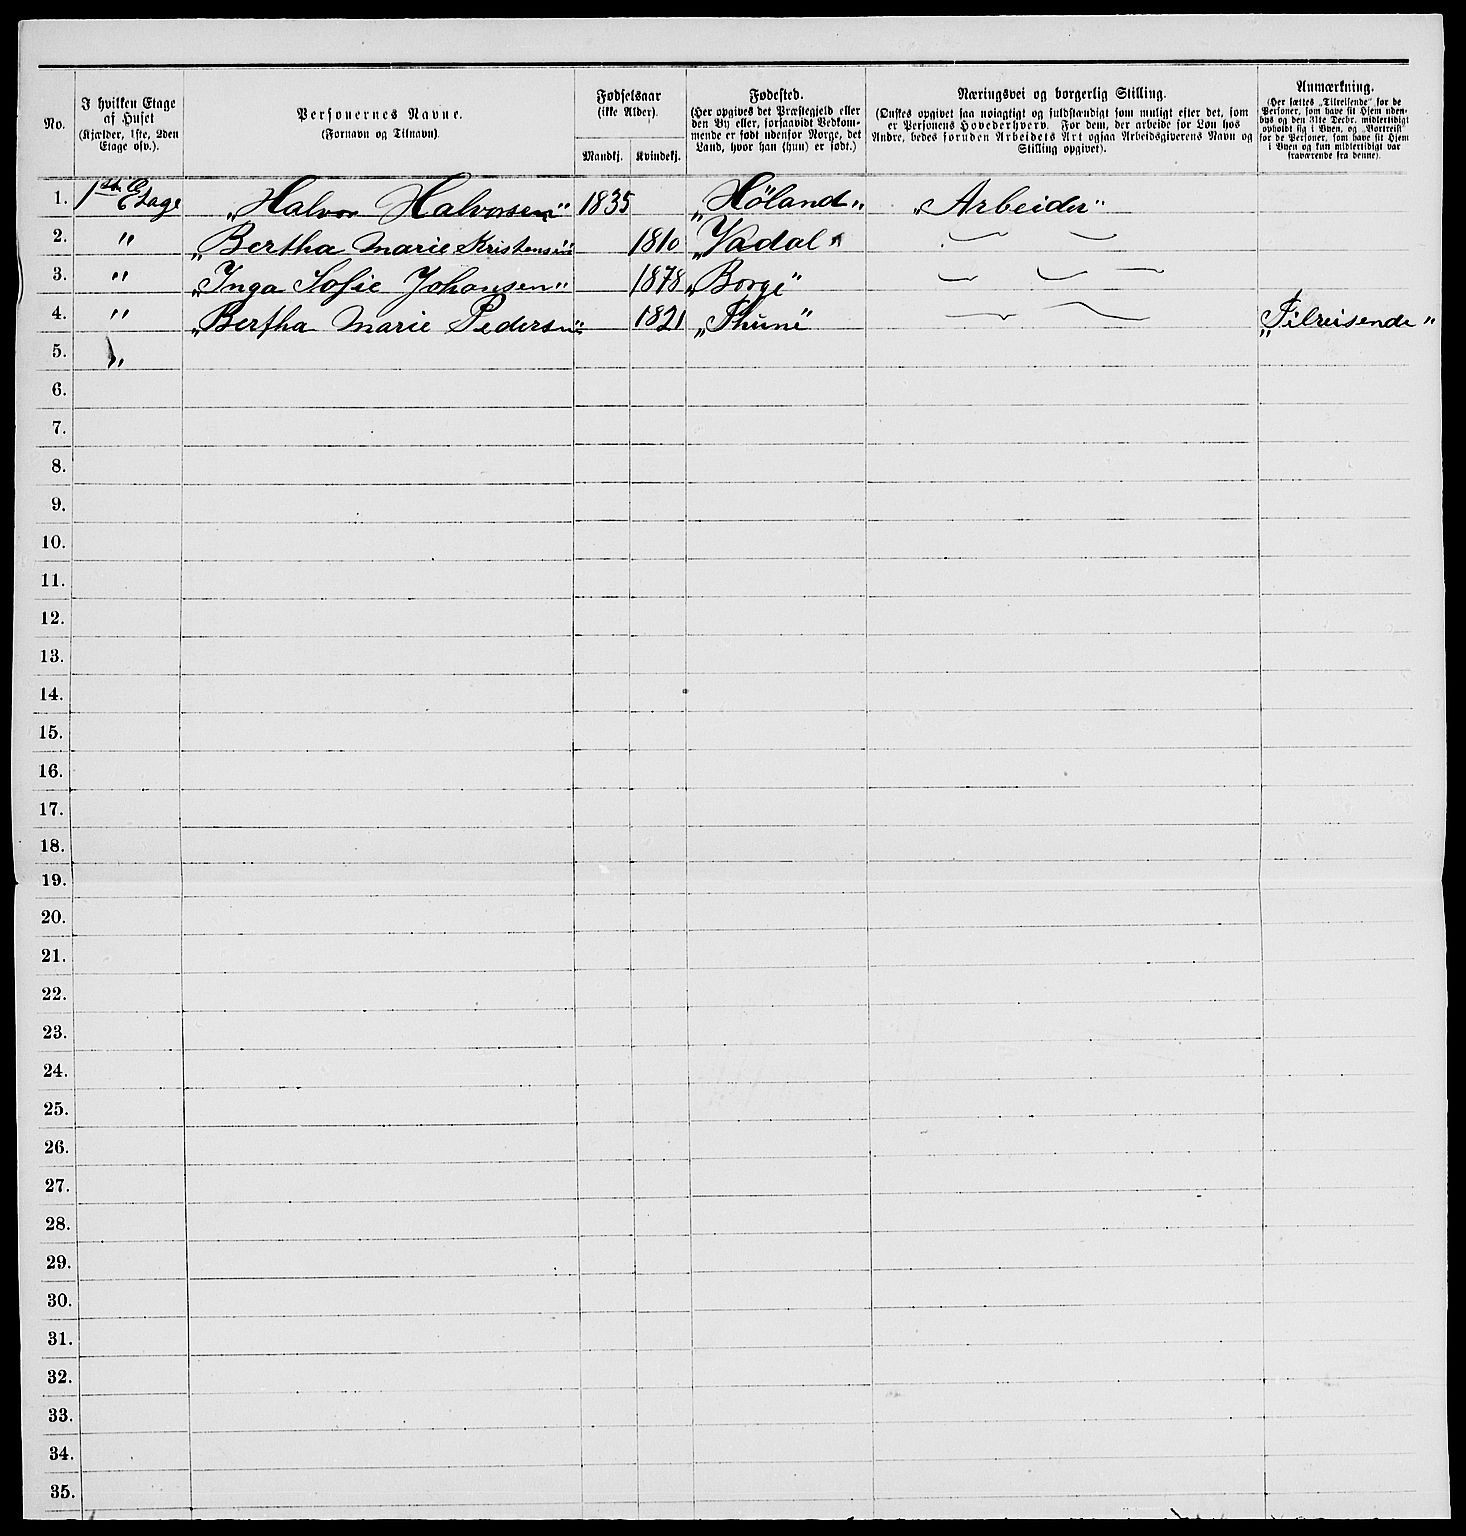 No.
I hvilken Etage af Huset (Kjælder, 1ste, 2den Etage osv.).
Personernes Navne. (Fornavn og Tilnavn).
Fødselsaar (ikke Alder).
Mandkj. Kvindekj.
Fødested. (Her opgives det Præstegjeld eller den By eller, forsaavidt Vedkommende er født udenfor Norge, det Land, hvor han (hun) er født.)
Næringsvei og borgerlig Stilling. (Ønskes opgivet saa nøiagtigt og fuldstændigt som muligt efter det, som er Personens Hovederhverv. For dem, der arbeide for Løn hos Andre, bedes foruden Arbeidets Art ogsaa Arbeidsgiverens Navn og Stilling opgivet).
Anmærkning. (Her sættes „Tilreisende" for de Personer, som have sit Hjem udenbys og den 31te Decbr. midlertidigt opholdt sig i Byen, og „Bortreist" for de Personer, som have sit Hjem i Byen og kun midlertidigt var fraværende fra denne).
1. 1ste Etage „Halvor Halvorsen" 1835 „Høland" „Arbeider"
2. " „Bertha Marie Kristensen" 1810 „Vadal"
3. " „Inga Sofie Johansen" 1878 „Borge"
4. " „Bertha Marie Pedersen" 1821 „Thune" „Tilreisende"
5. "
6.
7.
8.
9.
10.
11.
12.
13.
14.
15.
16.
17.
18.
19.
20.
21.
22.
23.
24.
25.
26.
27.
28.
29.
30.
31.
32.
33.
34.
35.